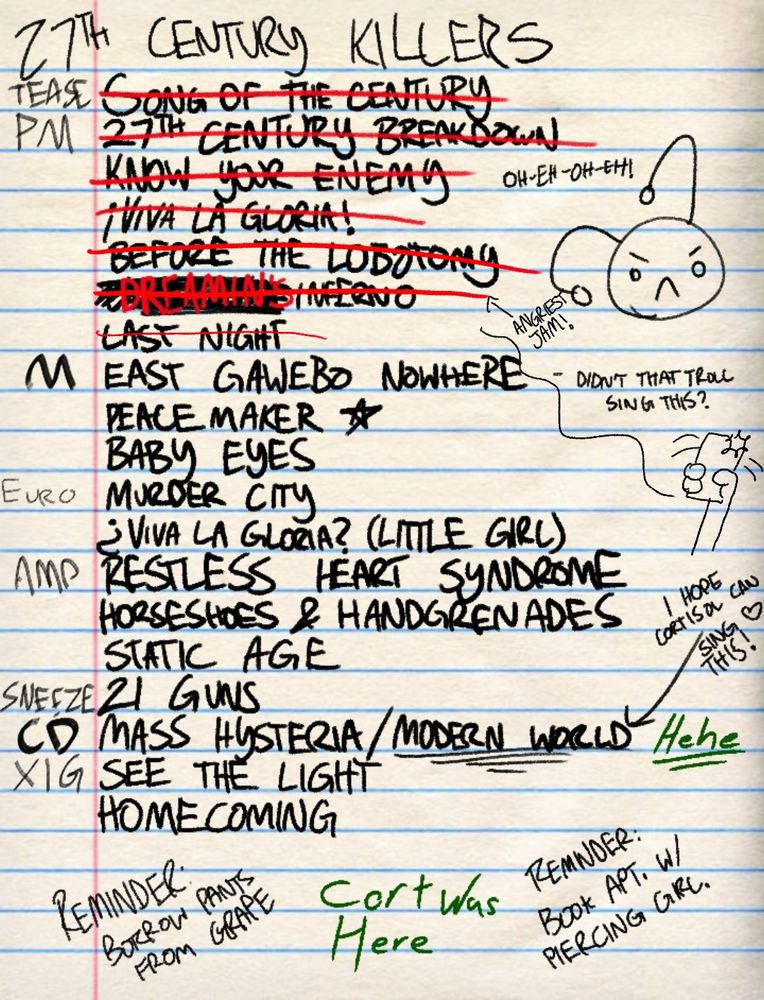 27TH CENTURY KILLERS
TEASE SONG OF THE CENTURY
PM 27TH CENTURY BREAKDOWN
KNOW YOUR ENEMY
OH-EH-OH-EH!
¡VIVA LA GLORIA!
BEFORE THE LOBOTOMY
DREAMIN'S INFERNO
ANGRIEST JAM!
LAST NIGHT
M EAST GAWEBO NOWHERE - DIDN'T THAT TROLL
SING THIS?
PEACEMAKER ☆
BABY EYES
EURO MURDER CITY
¿VIVA LA GLORIA? (LITTLE GIRL)
AMP RESTLESS HEART SYNDROME
HORSESHOES & HANDGRENADES
I HOPE
CORTISOL CAN
SING ♡
THIS!
STATIC AGE
SNEEZE 21 GUNS
CD MASS HYSTERIA/MODERN WORLD Hehe
XIG SEE THE LIGHT
HOMECOMING
REMINDER:
BORROW PANTS
FROM GRAPE
Cort Was
Here
REMINDER:
BOOK APT. W/
PIERCING GIRL.